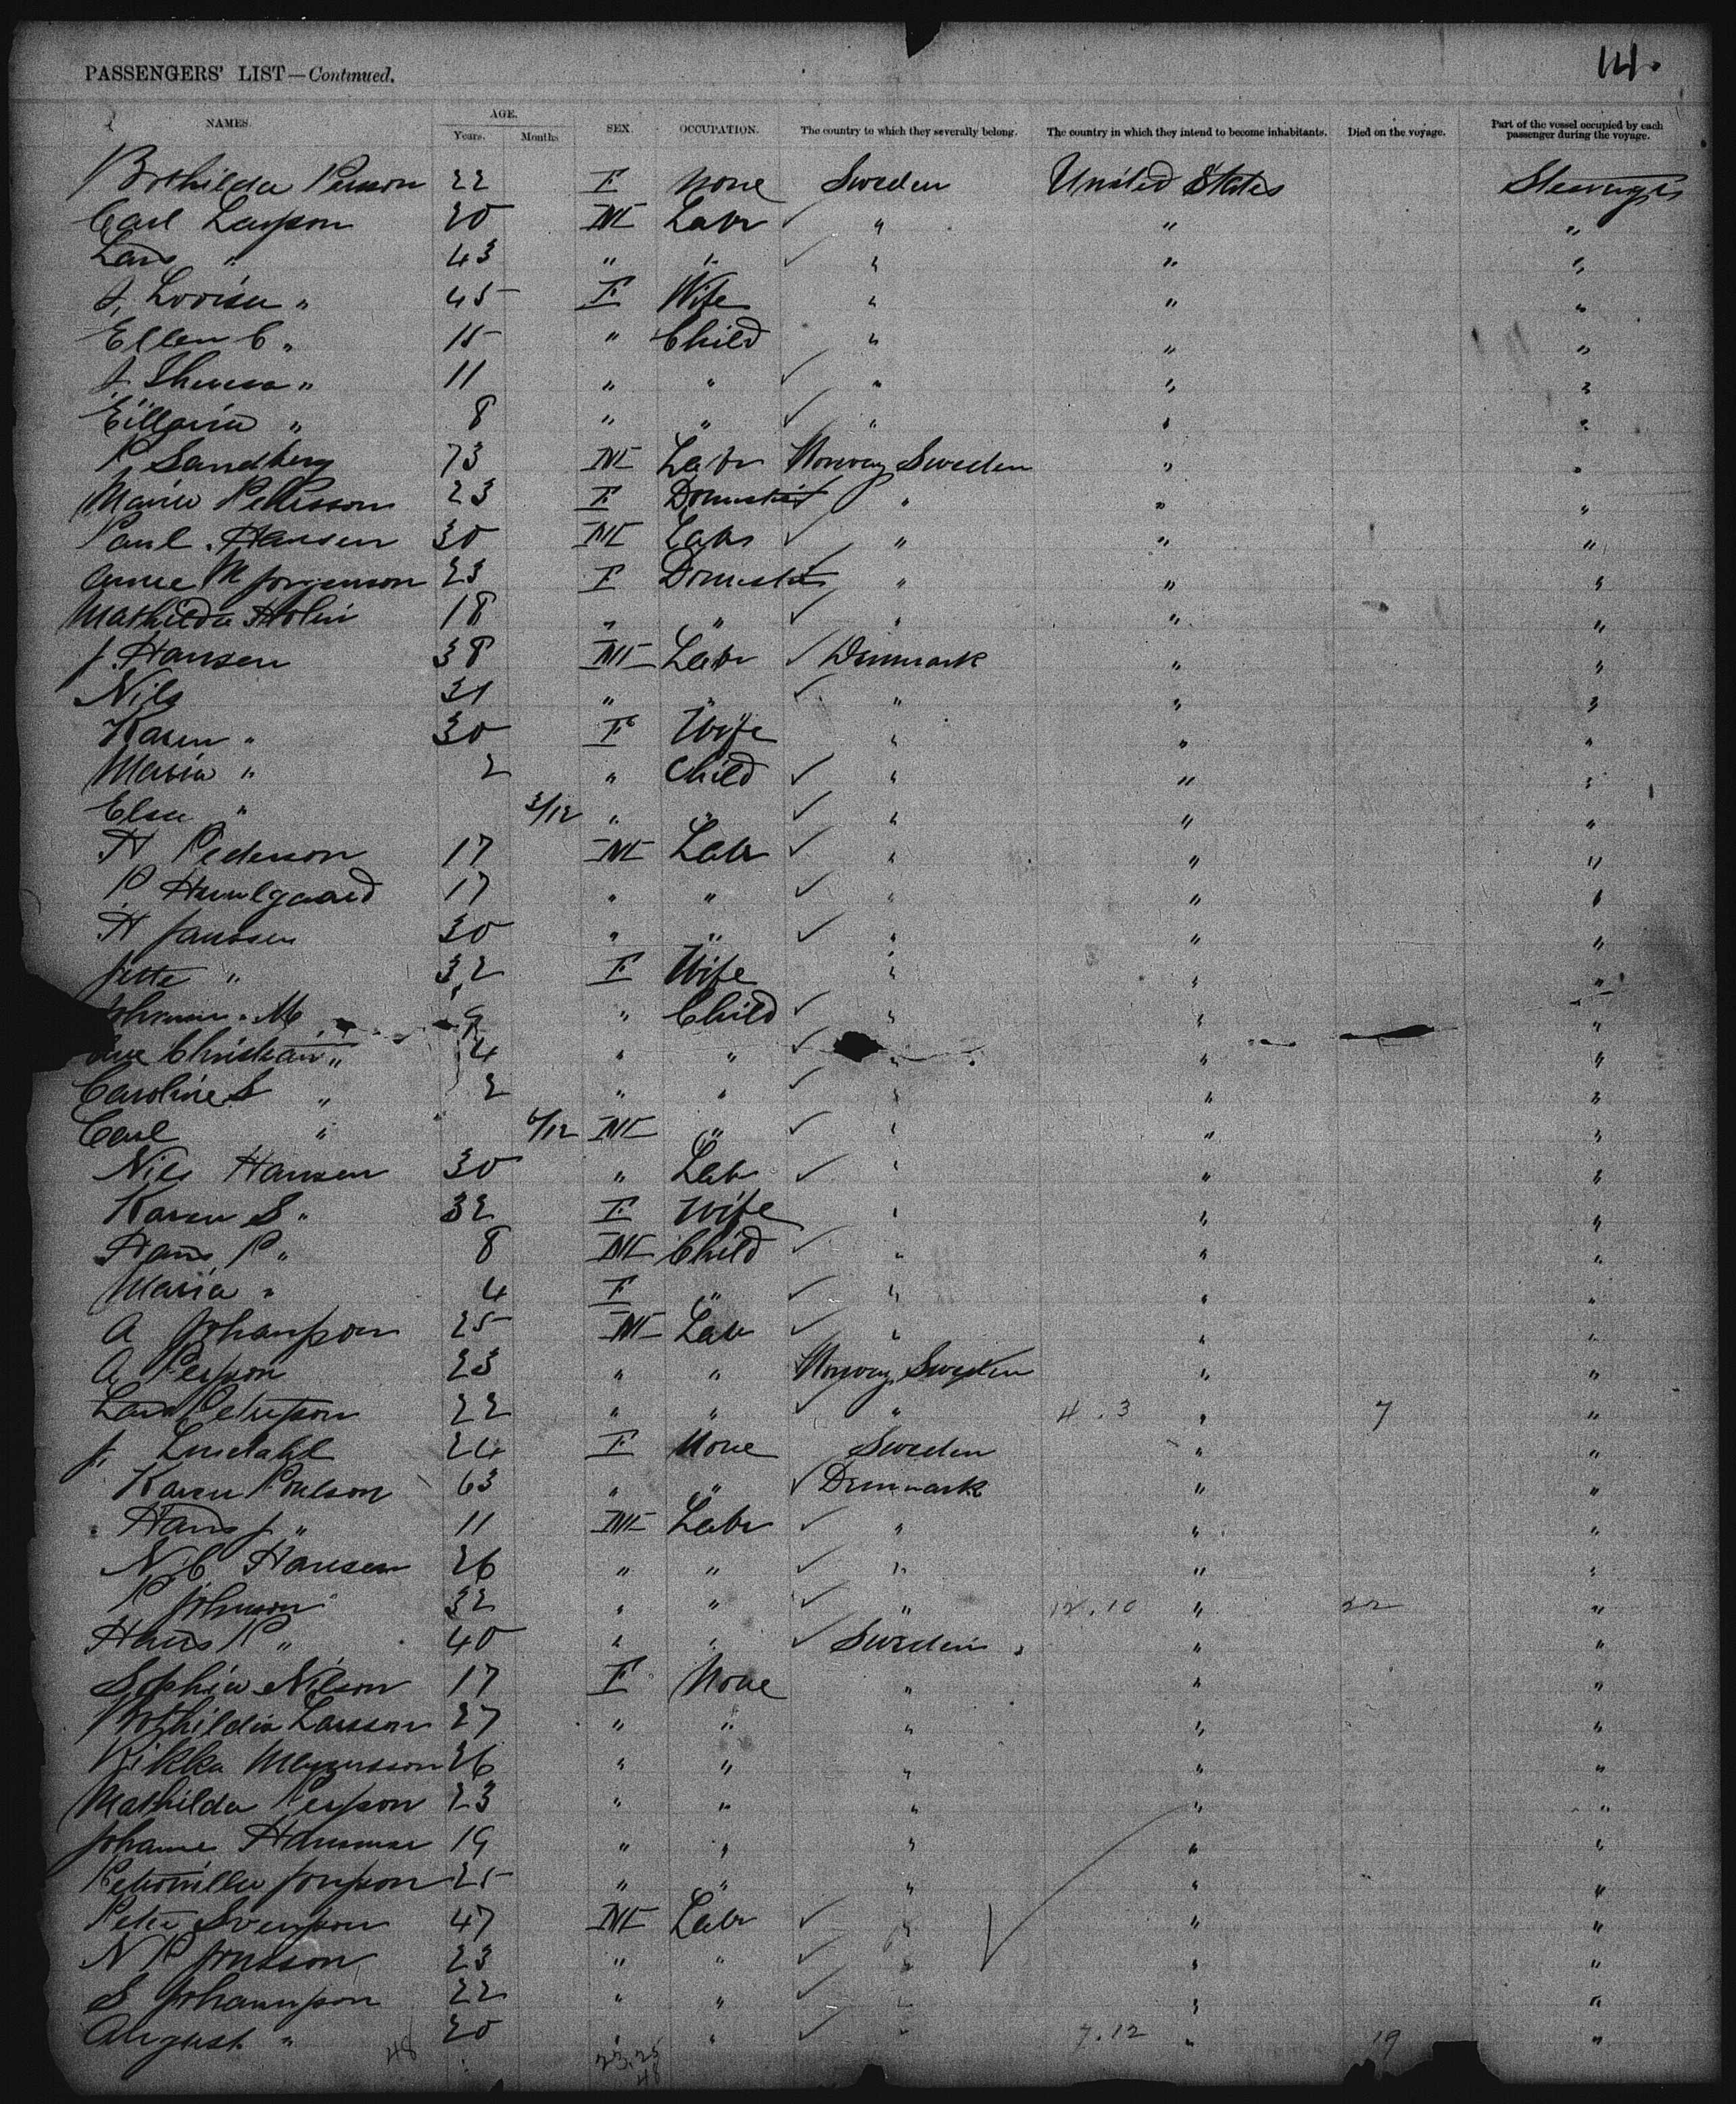 PASSENGERS' LIST—Continued. 14.
NAMES. AGE. Years. Months. SEX. OCCUPATION. The country to which they severally belong. The country in which they intend to become inhabitants. Died on the voyage. Part of the vessel occupied by each passenger during the voyage.
Bothilda Persson 22 F None Sweden United States Steerage
Carl Larsson 20 M Labr ✓ " " "
Lars " 43 " " ✓ " " "
J. Lovisa " 45 F Wife " " "
Ellen C " 15 " Child " " "
J. Theresa " 11 " " ✓ " " "
" 8 " " ✓ " " "
P. Sandberg 73 M Labr Norway Sweden " "
Maria 23 F Domestic " " "
Paul Hansen 30 M Labr ✓ " " "
Anne M Jorgenson 23 F Domestic " " "
Mathilda Holm 18 " " ✓ " " "
J. Hansen 38 M Labr ✓ Denmark " "
Nils 31 " " ✓ " " "
Karen " 30 F Wife " " "
Maria " 2 " Child ✓ " " "
Elsa " 3/12 " " ✓ " " "
H Pederson 17 M Labr ✓ " " "
P. 17 " " ✓ " " "
H Janssen 30 " " ✓ " " "
Jette " 32 F Wife " " "
M 9 " Child ✓ " " "
Christian " 4 " " ✓ " " "
Caroline S " 2 " " ✓ " " "
Carl " /12 M " ✓ " " "
Niels Hansen 30 " Labr ✓ " " "
Karen S " 32 F Wife " " "
Hans P " 8 M Child ✓ " " "
Maria " 4 F " ✓ " " "
A Johansson 25 M Labr ✓ " " "
A Persson 23 " " Norway Sweden " "
Lars Petersson 22 " " ✓ " 4.3 " 7 "
J. Lindahl 24 F None Sweden " "
Karen Poulson 63 " " ✓ Denmark " "
Hans J " 11 M Labr ✓ " " "
N. C Hansen 26 " " ✓ " " "
P Johnson 32 " " ✓ " 12.10 " 22 "
Hans P " 40 " " ✓ Sweden " "
Sophia Nilson 17 F None " " "
Bothilda Larsson 27 " " " " "
26 " " " " "
Mathilda Persson 23 " " " " "
Johanne 19 " " " " "
Petronilla Jonsson 25 " " " " "
Peter Svensson 47 M Labr ✓ " " "
N P Jonsson 23 " " ✓ " " "
S Johannson 22 " " ✓ " " "
August " 20 " " ✓ " 7.12 " 19 "
48 23.25
48